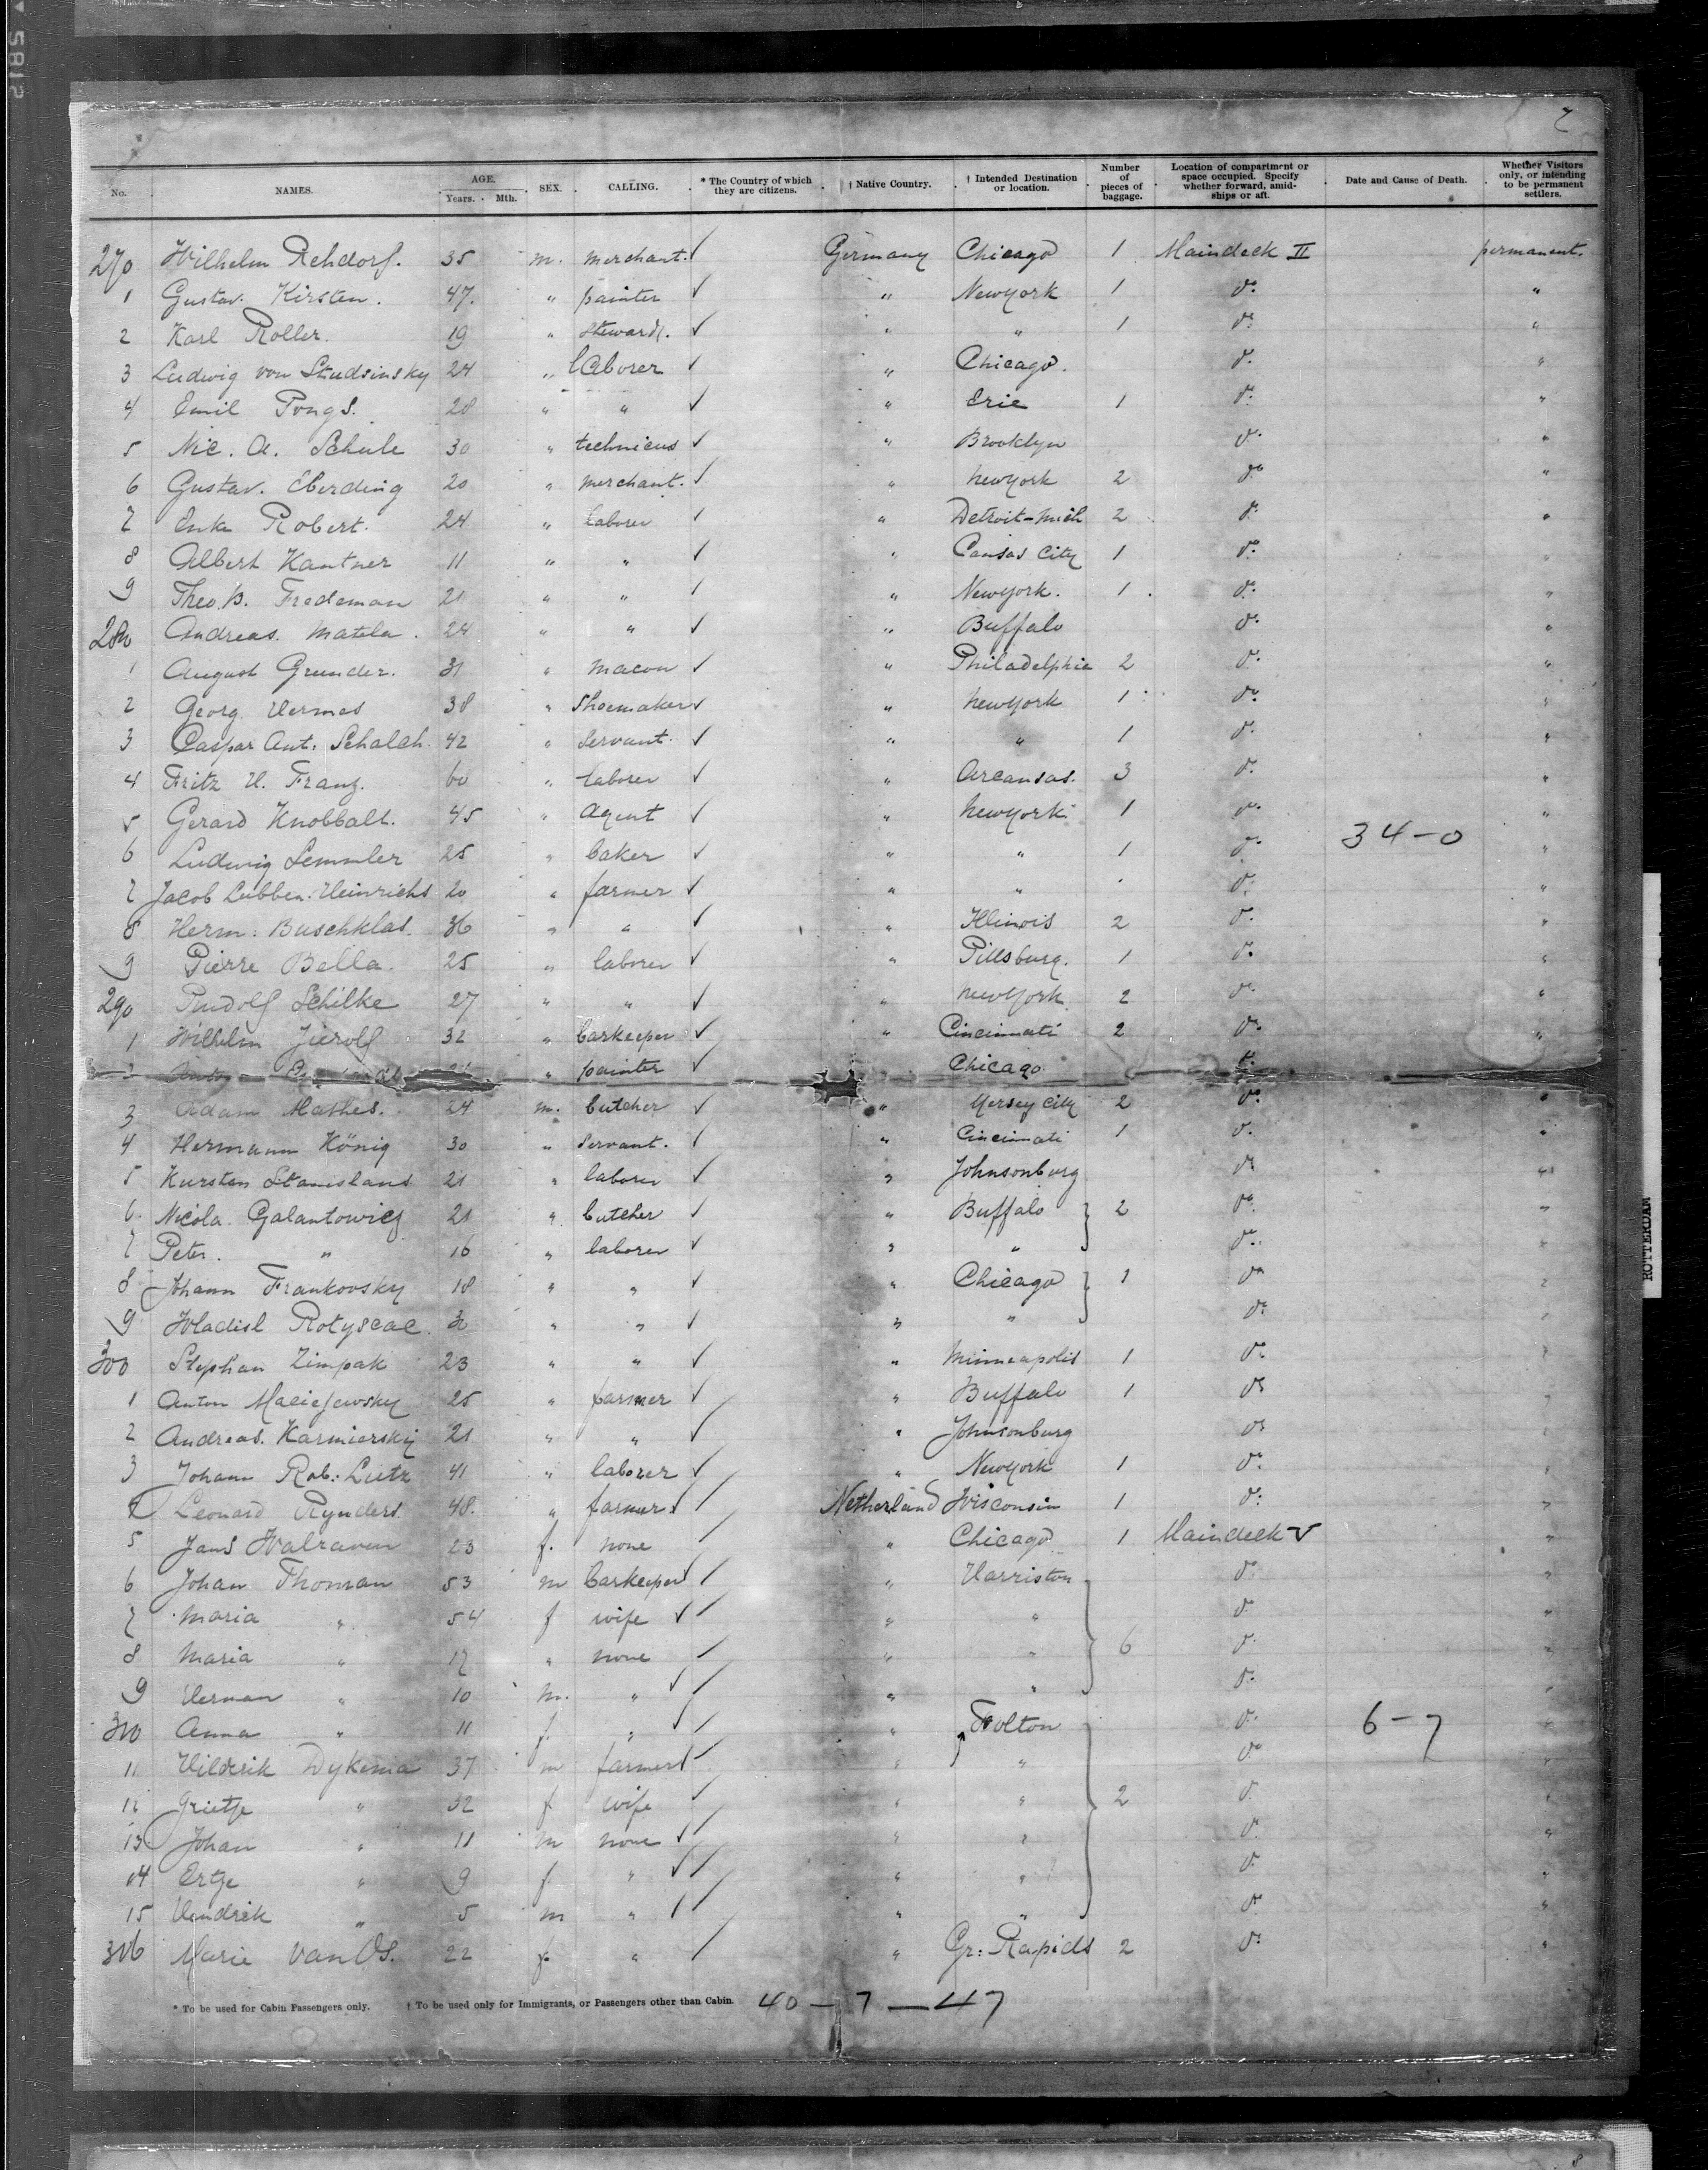 5812
7
No. NAMES. AGE. Years. Mth. SEX. CALLING. * The Country of which they are citizens. † Native Country. † Intended Destination or location. Number of pieces of baggage. Location of compartment or space occupied. Specify whether forward, amidships or aft. Date and Cause of Death. Whether Visitors only, or intending to be permanent settlers.
270 Wilhelm Rehdorf. 35 m. merchant. ✓ Germany Chicago 1 Maindeck II permanent.
1 Gustav. Kirsten. 47. " painter ✓ " NewYork 1 do. "
2 Karl Roller. 19 " Steward. ✓ " " 1 do. "
3 Ludwig von Studsinsky 24 " laborer ✓ " Chicago. do. "
4 Emil Pongs. 28 " " ✓ " Erie 1 do. "
5 Nic. A. Schule 30 " technicus ✓ " Brooklyn do. "
6 Gustav. Eberding 20 " merchant. ✓ " NewYork 2 do. "
7 Enke Robert. 24 " laborer ✓ " Detroit-Mich 2 do. "
8 Albert Kantner 11 " " ✓ " Cansas City 1 do. "
9 Theo. B. Fredeman 21 " " ✓ " NewYork. 1 do. "
280 Andreas. Matela. 24 " " ✓ " Buffalo do. "
1 August Grunder. 31 " macon ✓ " Philadelphia 2 do. "
2 Georg Hermes 38 " Shoemaker ✓ " NewYork 1 do. "
3 Caspar Ant: Schalch. 42 " Servant. ✓ " " 1 do. "
4 Fritz H. Franz. 60 " laborer ✓ " Arcansas. 3 do. "
5 Gerard Knobball. 45 " Agent ✓ " NewYork 1 do. "
6 Ludwig Lemmler 25 " baker ✓ " " 1 do. 34-0 "
7 Jacob Lubben. Heinrichs 20 " farmer ✓ " " do. "
8 Herm: Buschklas. 36 " " ✓ " Illinois 2 do. "
9 Pierre Bella. 25 " laborer ✓ " Pittsburg. 1 do. "
290 Rudolf Schilke 27 " " ✓ " NewYork 2 do. "
1 Wilhelm Jierolf 32 " barkeeper ✓ " Cincinnati 2 do. "
2 " painter ✓ Chicago do.
3 Adam Mathes. 24 m. butcher ✓ " Yersey City 2 do. "
4 Hermann König 30 " Servant. ✓ " Cincinnati 1 do. "
5 Kursten Stanislaus 21 " laborer ✓ " Johnsonburg do. "
6. Nicola. Galantowicz 21 " butcher ✓ " Buffalo 2 do. "
7 Peter. " 16 " laborer ✓ " " do. "
8 Johann Frankovsky 18 " " ✓ " Chicago 1 do. "
9 Wladisl Rotyscac. " " ✓ " " do. "
300 Stephan Zimpak 23 " " ✓ " Minneapolis 1 do. "
1 Anton Maciejewsky 25 " farmer ✓ " Buffalo 1 do. "
2 Andreas. Karmierskij 21 " " ✓ " Johnsonburg do. "
3 Johann Rob: Lutz 41 " laborer ✓ " NewYork 1 do. "
4 Leonard Rynders. 48. " farmer. ✓ Netherland Wisconsin 1 do. "
5 Jans Walraven 23 f. none " Chicago 1 Maindeck V "
6 Johan Thoman 53 m barkeeper ✓ " Harriston do. "
7 Maria " 54 f wife ✓ " " do. "
8 Maria " 17 " none " " 6 do. "
9 Herman " 10 m. " ✓ " " do. "
310 Anna " 11 f. " ✓ " Folton do. 6-7 "
11 Hilderik Dykema 37 m farmer ✓ " " do. "
12 Grietje " 32 f wife ✓ " " 2 do. "
13 Johan " 11 m none ✓ " " do. "
14 Ertje " 9 f. " ✓ " " do. "
15 Hendrik " 5 m " ✓ " " do. "
316 Marie van Os. 22 f. " " Gr: Rapids 2 do. "
* To be used for Cabin Passengers only. † To be used only for Immigrants, or Passengers other than Cabin. 40 — 7 — 47
ROTTERDAM
8